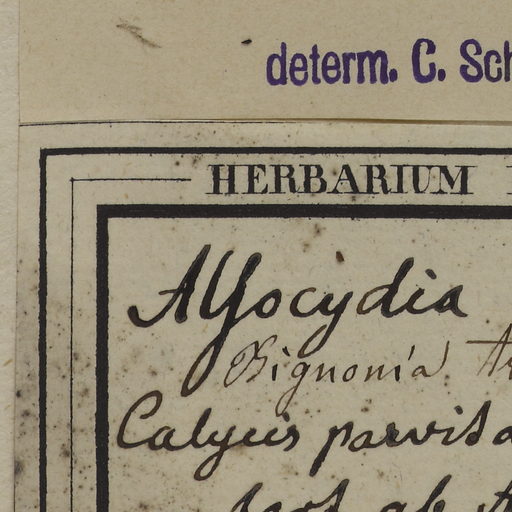 determ. C. Sch
HERBARIUM
Allocydia
Bignonia
Calycis parvis
ab